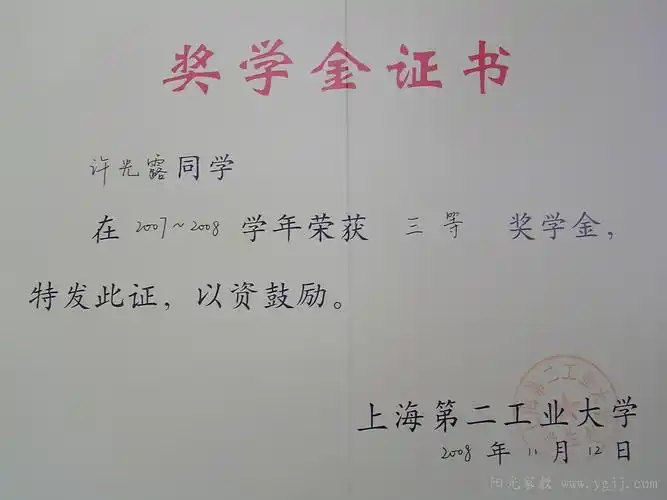 奖学金证书
许光露同学
在2007~2008学年荣获 三等 奖学金,
特发此证，以资鼓励。
上海第二工业大学
2008年11月12日
阳光家教 www.ygjj.com